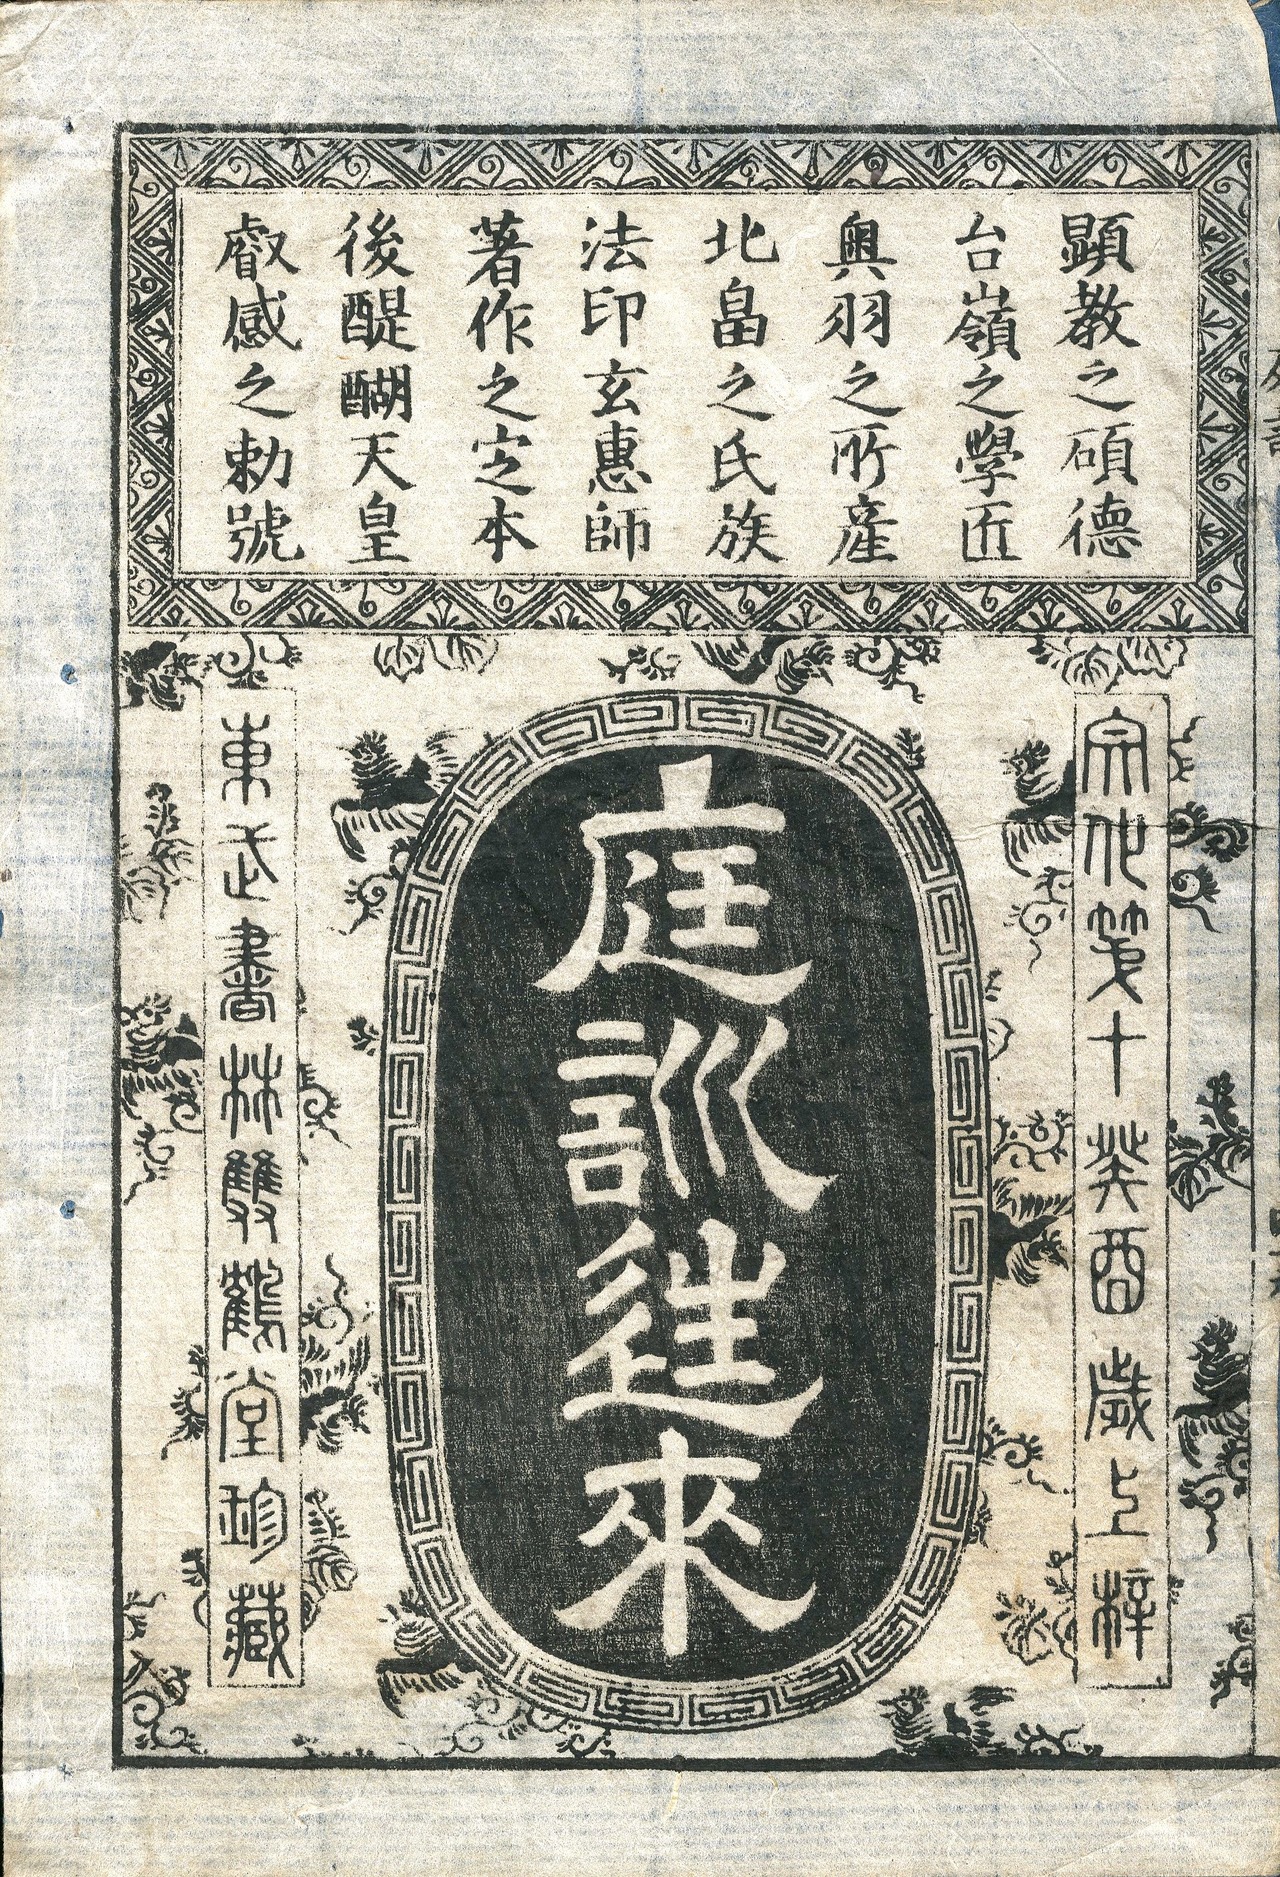 顕教之碩德
台嶺之學匠
奥羽之所產
北畠之氏族
法印玄惠師
著作之定本
後醍醐天皇
叡感之勅號
文化第十癸酉歲上梓
庭訓往來
東武書林雙鶴堂珍藏